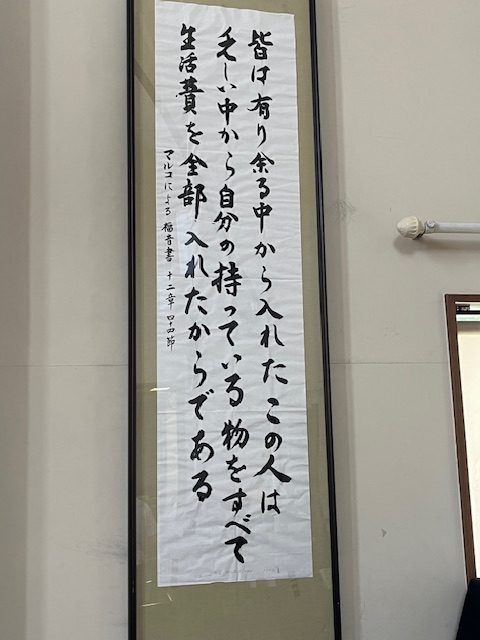 皆は有り余る中から入れたこの人は
乏しい中から自分の持っている物をすべて
生活費を全部入れたからである
マルコによる福音書 十二章四十四節